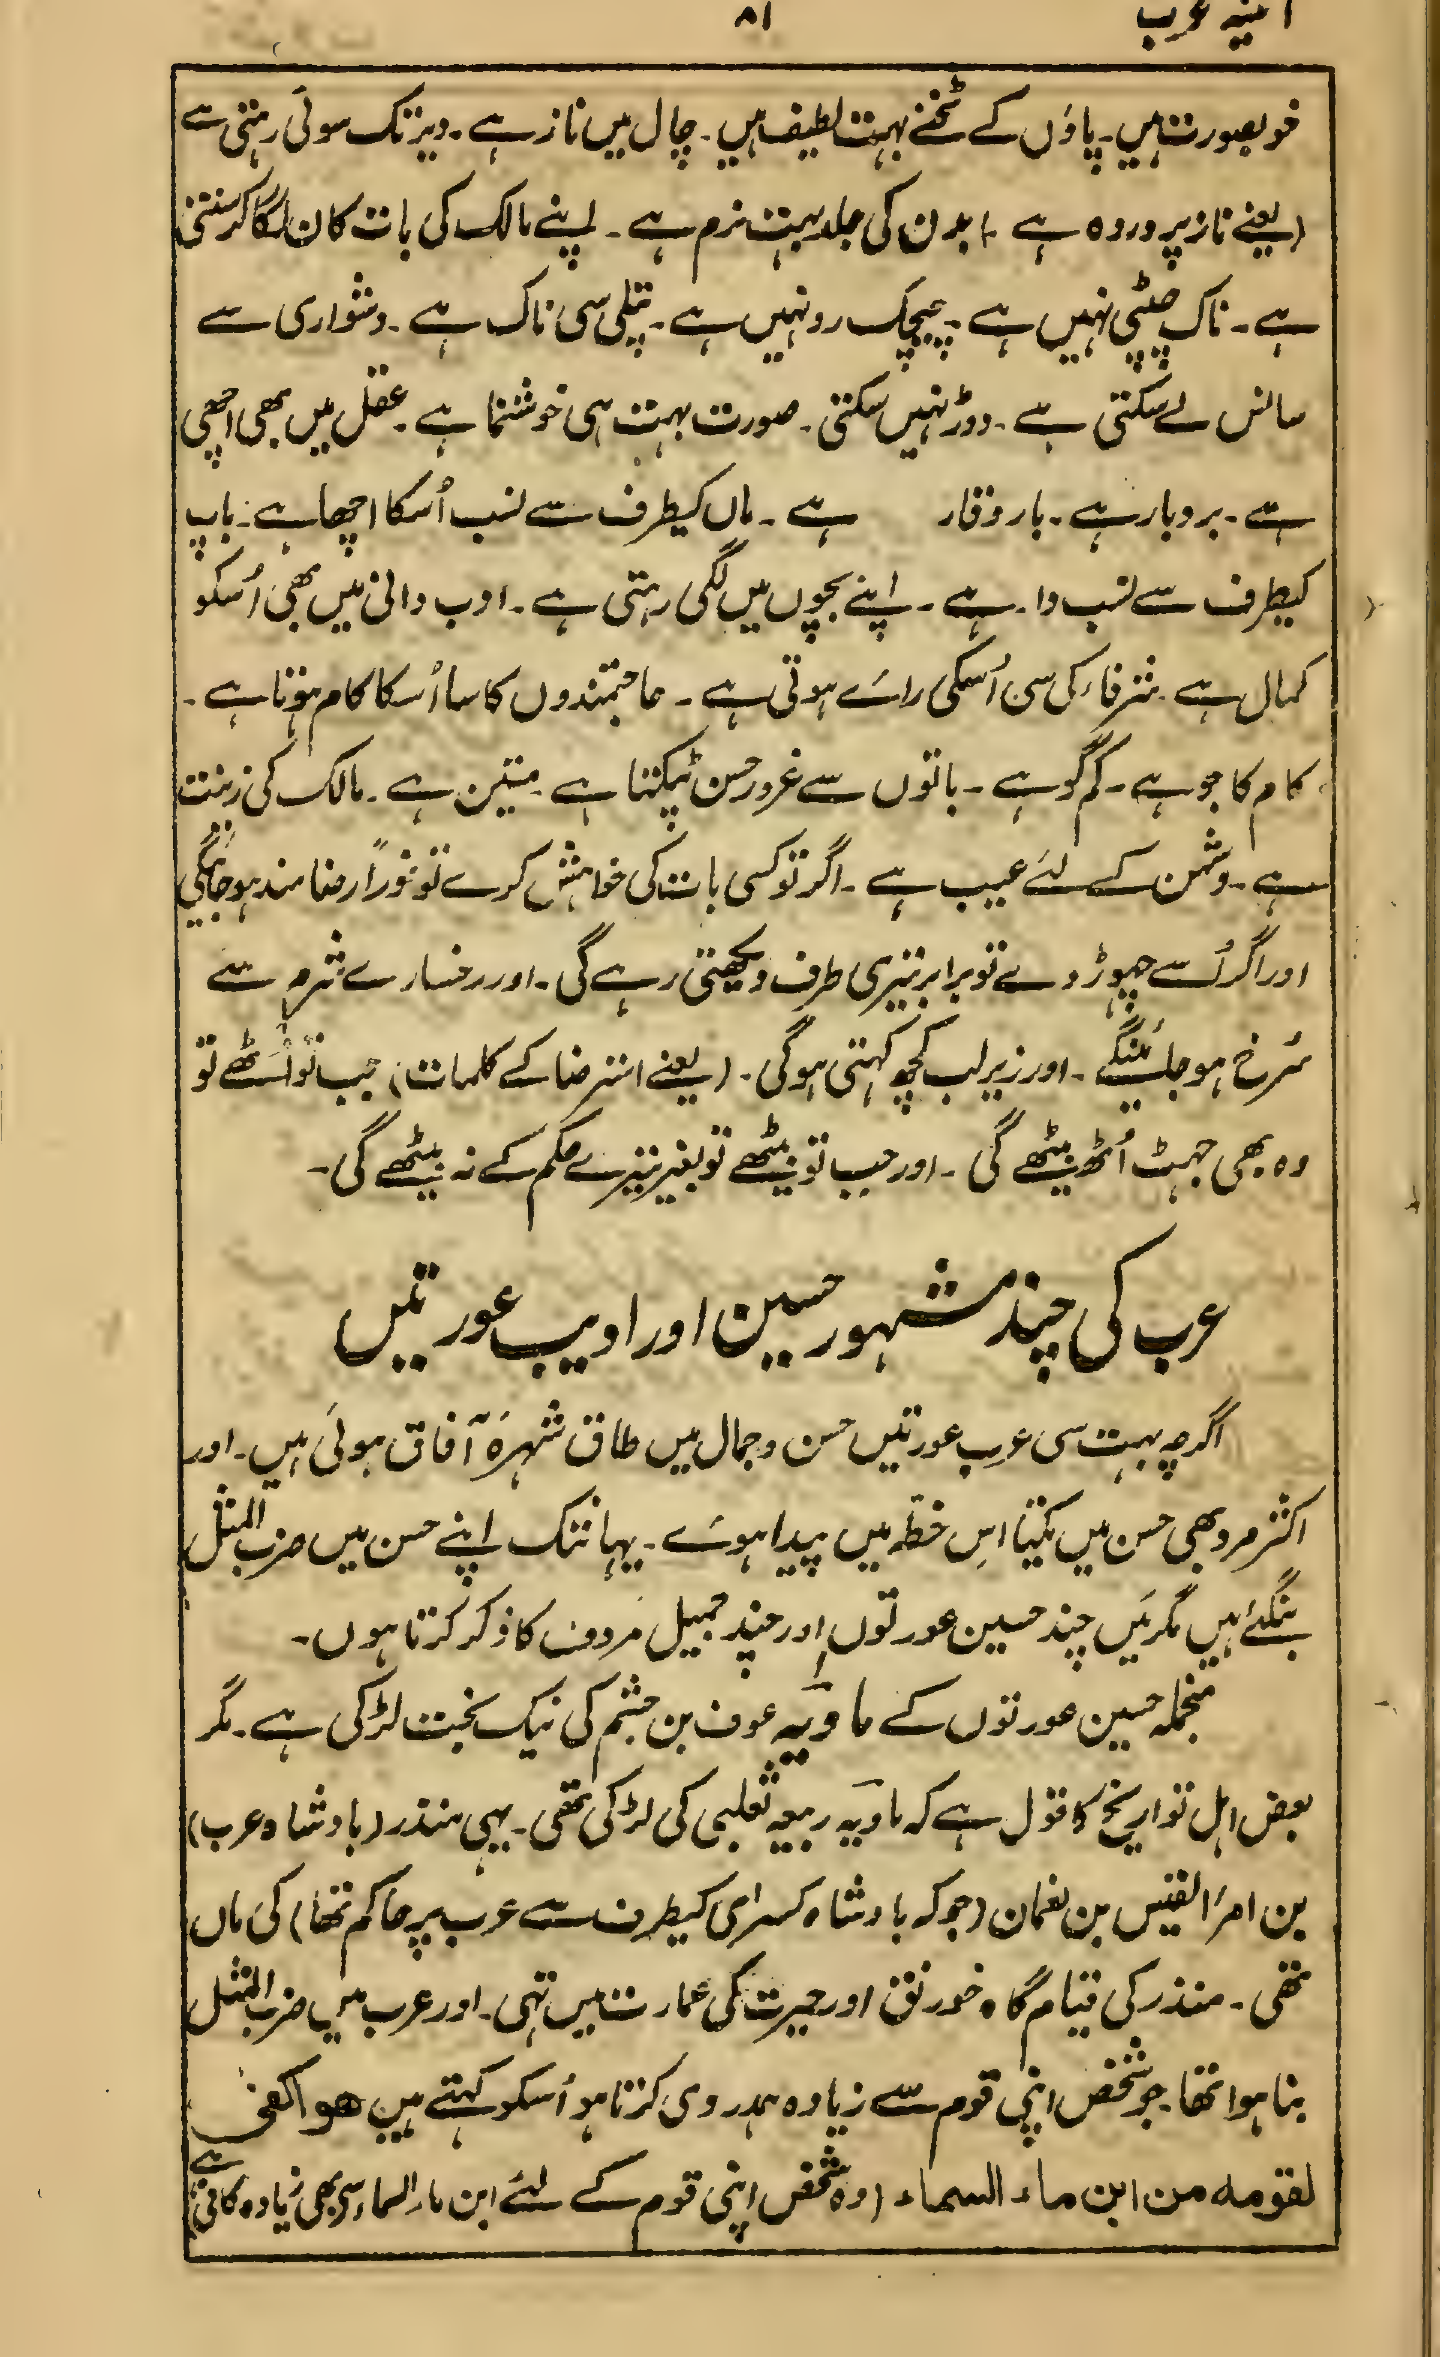 آئینہ عرب
۸۱
خوبصورت ہیں۔ پاؤں کے ٹخنے بہت لطیف ہیں۔ چال میں ناز ہے۔ دیر تک سوئی رہتی ہے
(یعنے ناز پروردہ ہے) بدن کی جلد بہت نرم ہے۔ اپنے مالک کی بات کان لگا کر سنتی
ہے۔ ناک چپٹی نہیں ہے۔ چیچک رو نہیں ہے۔ پتلی سی ناک ہے۔ دشواری سے
سانس لے سکتی ہے۔ دوڑ نہیں سکتی۔ صورت بہت ہی خوشنما ہے۔ عقل میں بھی اچھی
ہے۔ بردبار ہے۔ باروقار ہے۔ ماں کیطرف سے نسب اُسکا اچھا ہے۔ باپ
کیطرف سے نسب دار ہے۔ اپنے بچوں میں لگی رہتی ہے۔ ادب دانی میں بھی اُسکو
کمال ہے۔ شرفاء کی سی اُسکی رائے ہوتی ہے۔ حاجتمندوں کا سا اُسکا کام ہوتا ہے۔
کام کاجو ہے۔ کم گو ہے۔ باتوں سے غرور حسن ٹپکتا ہے۔ متین ہے۔ مالک کی زینت
ہے۔ دشمن کے لئے عیب ہے۔ اگر تو کسی بات کی خواہش کرے تو فوراً رضامند ہو جائیگی
اور اگر اُسے چھوڑ دے تو برابر تیری طرف دیکھتی رہے گی۔ اور رخسارے شرم سے
سُرخ ہو جائینگے۔ اور زیر لب کچھ کہتی ہوگی۔ (یعنے استرضا کے کلمات) جب تو اُٹھے تو
وہ بھی جھٹ اُٹھ بیٹھے گی۔ اور جب تو بیٹھے تو بغیر تیرے حکم کے نہ بیٹھے گی۔
عرب کی چند مشہور حسین اور ادیب عورتیں
اگرچہ بہت سی عرب عورتیں حسن و جمال میں طاق شہرۂ آفاق ہوئی ہیں۔ اور
اکثر مرد بھی حسن میں یکتا اس خطّہ میں پیدا ہوئے۔ یہانتک اپنے حسن میں ضرب المثل
بنگئے ہیں مگر میں چند حسین عورتوں اور چند جمیل مردوں کا ذکر کرتا ہوں۔
منجملہ حسین عورتوں کے ماویہ عوف بن جشم کی نیک بخت لڑکی ہے۔ مگر
بعض اہل تواریخ کا قول ہے کہ ماویہ ربیعہ ثعلبی کی لڑکی تھی۔ یہی منذر (بادشاہ عرب)
بن امرٔ القیس بن نعمان (جو کہ بادشاہ کسرای کیطرف سے عرب پر حاکم تھا) کی ماں
تھی۔ منذر کی قیام گاہ خورنق اور حیرت کی عمارت میں تہی۔ اور عرب میں ضرب المثل
بنا ہوا تھا۔ جو شخص اپنی قوم سے زیادہ ہمدردی کرتا ہو اُسکو کہتے ہیں ھو اکفیٰ
لقومہ من ابن ماء السماء (وہ شخص اپنی قوم کے لئے ابن ماء السماء سے بھی زیادہ کافی ہے)